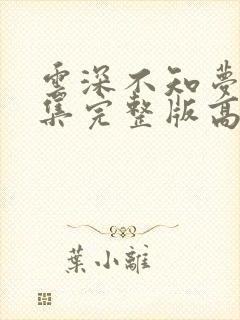 雲深不知夢
集完整版高
葉小離